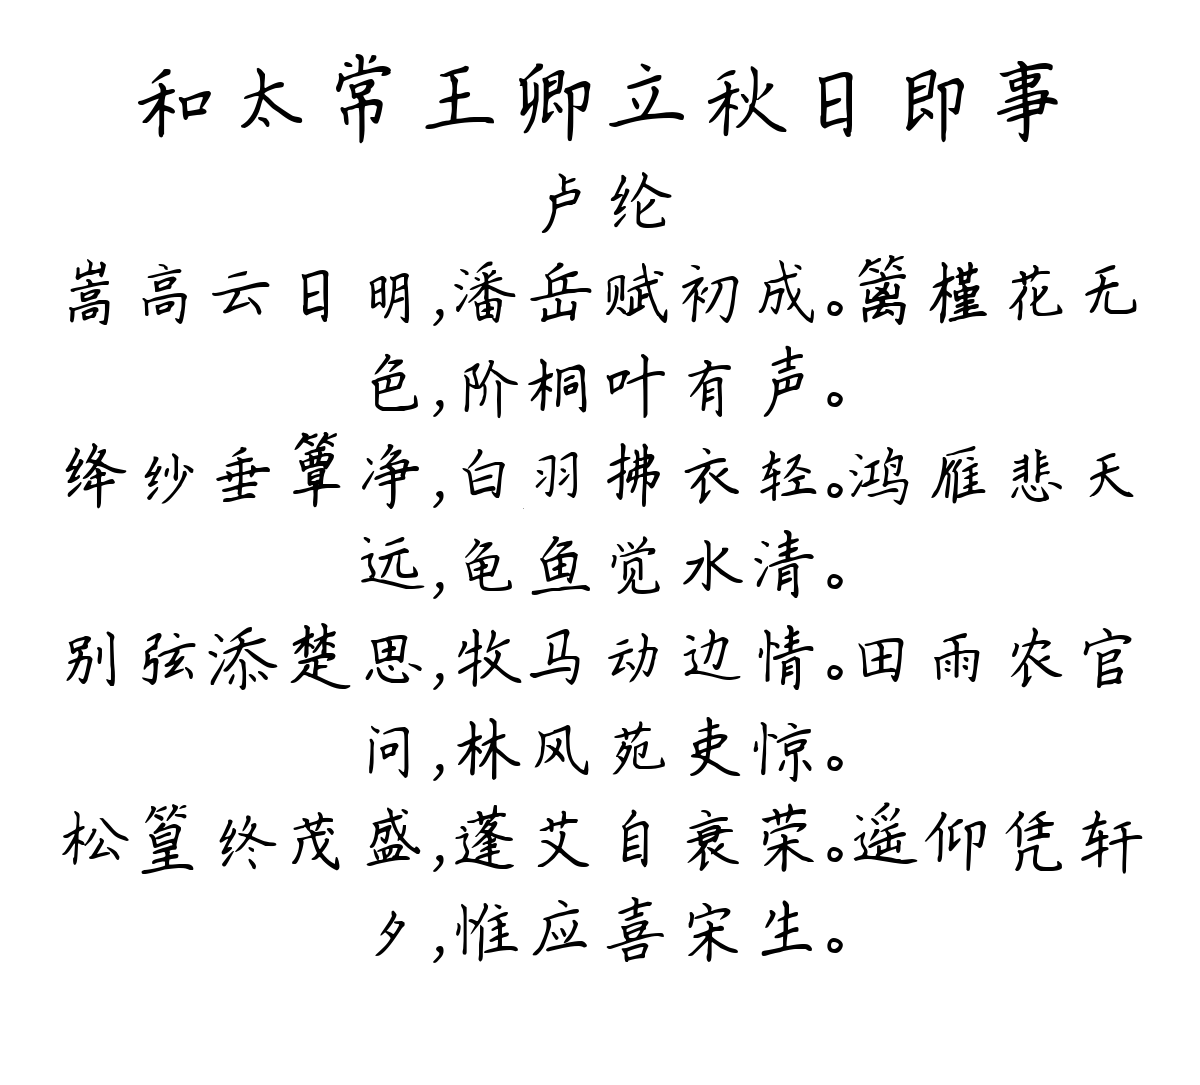 和太常王卿立秋日即事
卢纶
嵩高云日明,潘岳赋初成。篱槿花无
色,阶桐叶有声。
绛纱垂簟净,白羽拂衣轻。鸿雁悲天
远,龟鱼觉水清。
别弦添楚思,牧马动边情。田雨农官
问,林风苑吏惊。
松篁终茂盛,蓬艾自衰荣。遥仰凭轩
夕,惟应喜宋生。